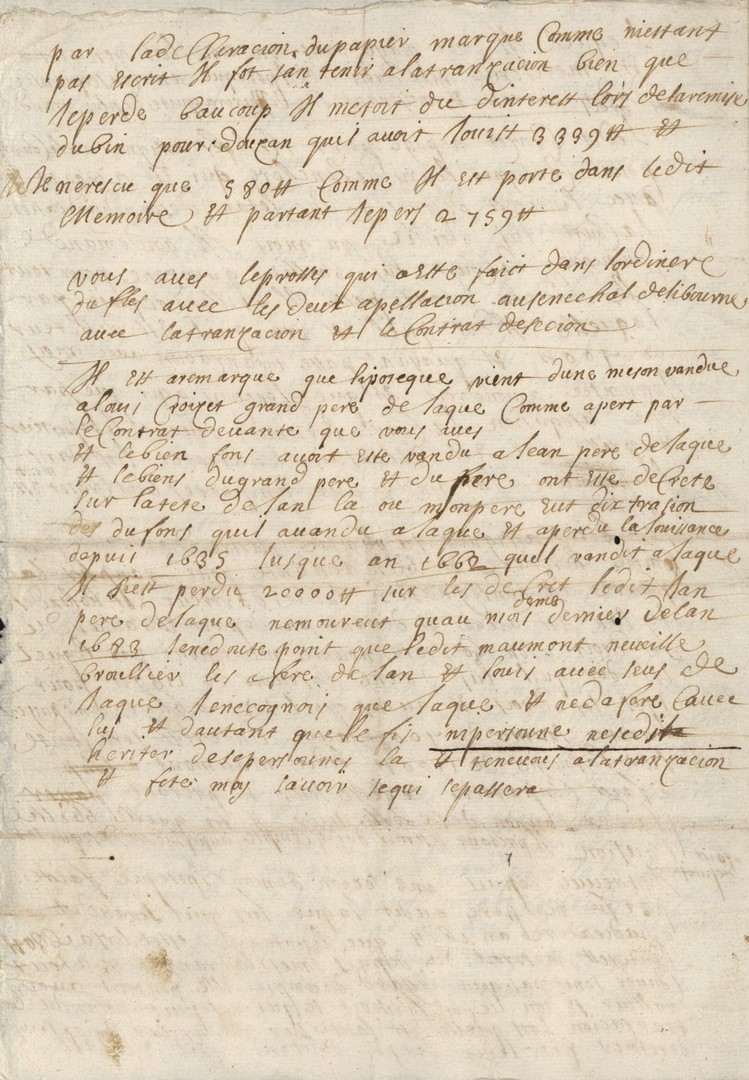 par ladeClaracion dupapier marque Comme niestant
pas escrit Il fot san tenir alatranzacion bien que
Ieperde baucoup Il mesoit du dinterest lors delaremise
dubin pour douzan quil avoit Iouist 3339tt et
Ieneresu que 580tt Comme Il est porte dans ledit
Memoire et partant Iepers 2759tt
vous aves leprosses qui aeste faict dans lordinere
dufles avec les deux apellacion ausenechal delibourne
avec latranzacion et le Contrat desecion
Il est aremarque que lipoteque vient dune meson vandue
alouis Croizet grand pere de laque Comme apert par
leContrat devante que vous aves
et lebien fons avoit este vandu aIean pere delaque
et lebiens dugrand pere et du pere ont este decrete
sur latete deIan la ou monpere eut dixtrasion
des dufons quil avandu alaque et aperdu laIouissance
depuis 1635 Iusque an 1662 quil vandit alaque
Il siest perdu 20000tt sur les decret ledit Ian
pere delaque nemoureut quau mois deme dernier delan
1683 Ienedoute point que ledit maumont neveille
broullier les afere deIan et louis avec seus de
laque Ienecognois que laque et nedafere Cavec
lui et dautant que le fis nipersoune nesedit
heriter desepersounes la et tenevous alatranzacion
et fete moy savoir sequi sepassera